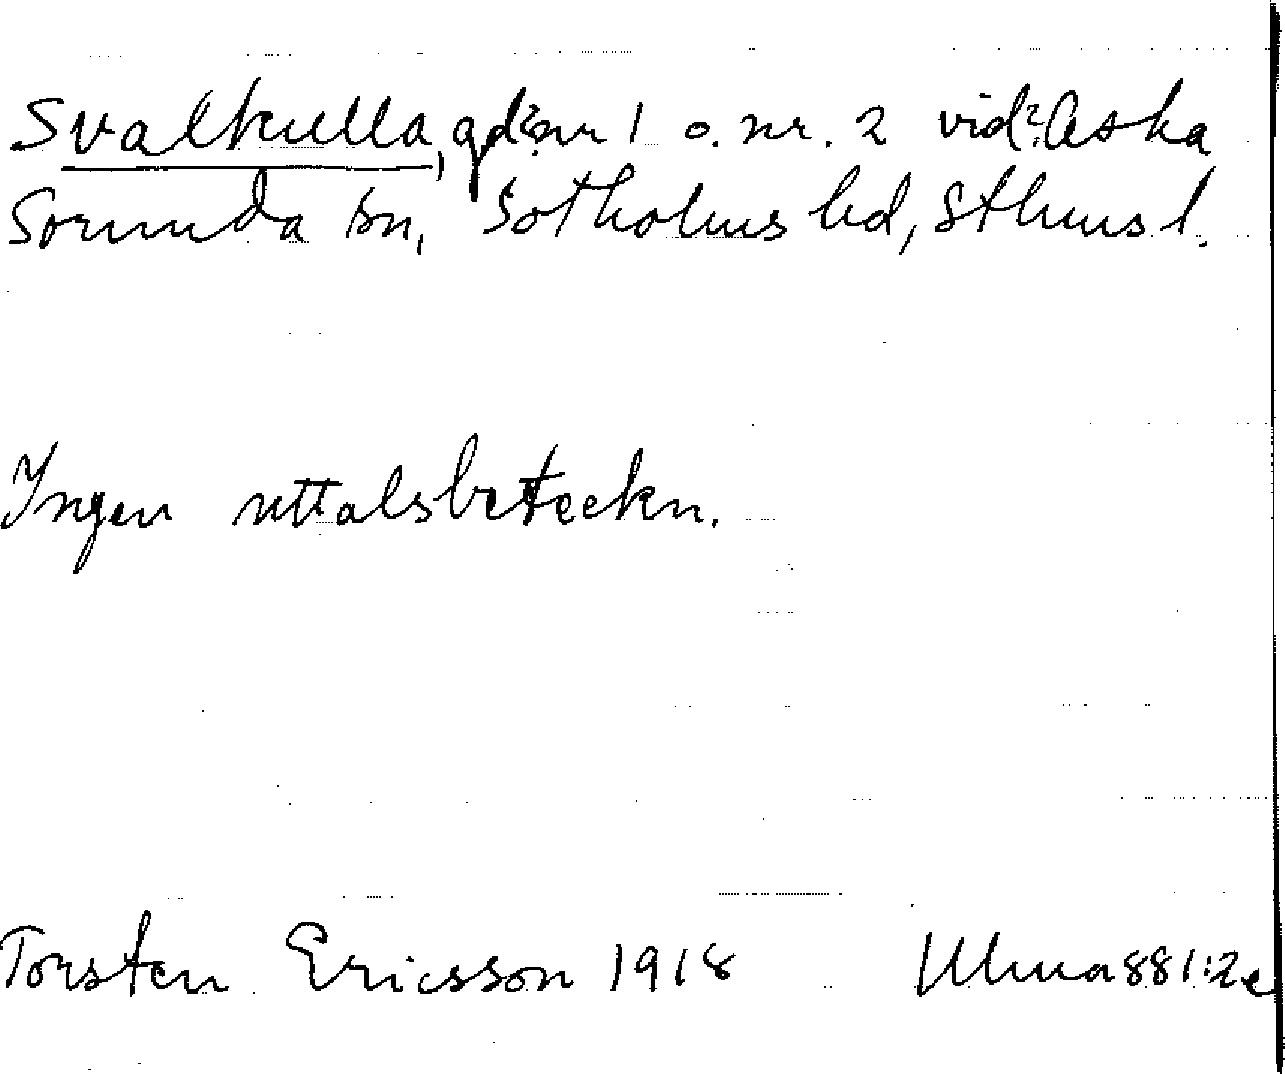 Svalkulla, gd? nr 1 o. nr. 2 vid? Aska
Sorunda sn, Sotholms hd, Sthms l.
Ingen uttalsbeteckn.
Torsten Ericsson 1918 Ulma 881:2e